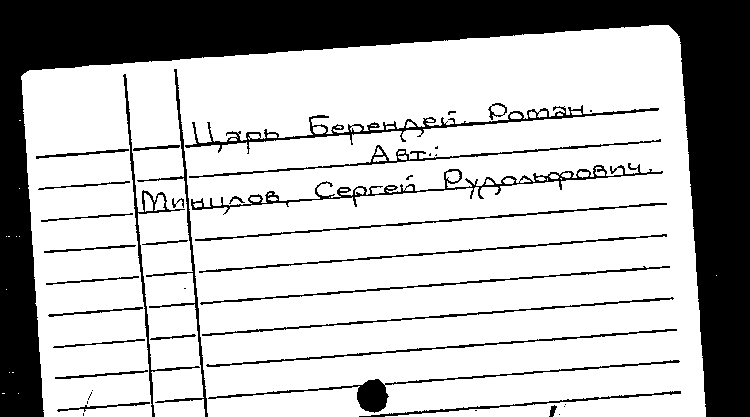 Царь Берендей. Роман.
Авт.:
Минцлов, Сергей Рудольфович.